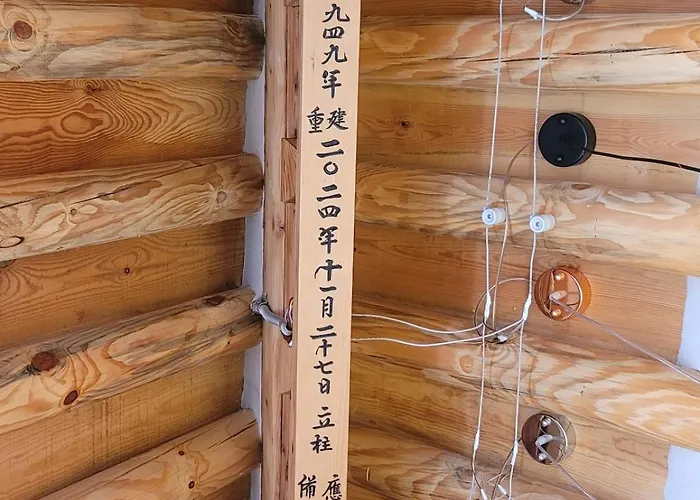 九四九年重建二〇二四年十一月二十七日立柱
應
備